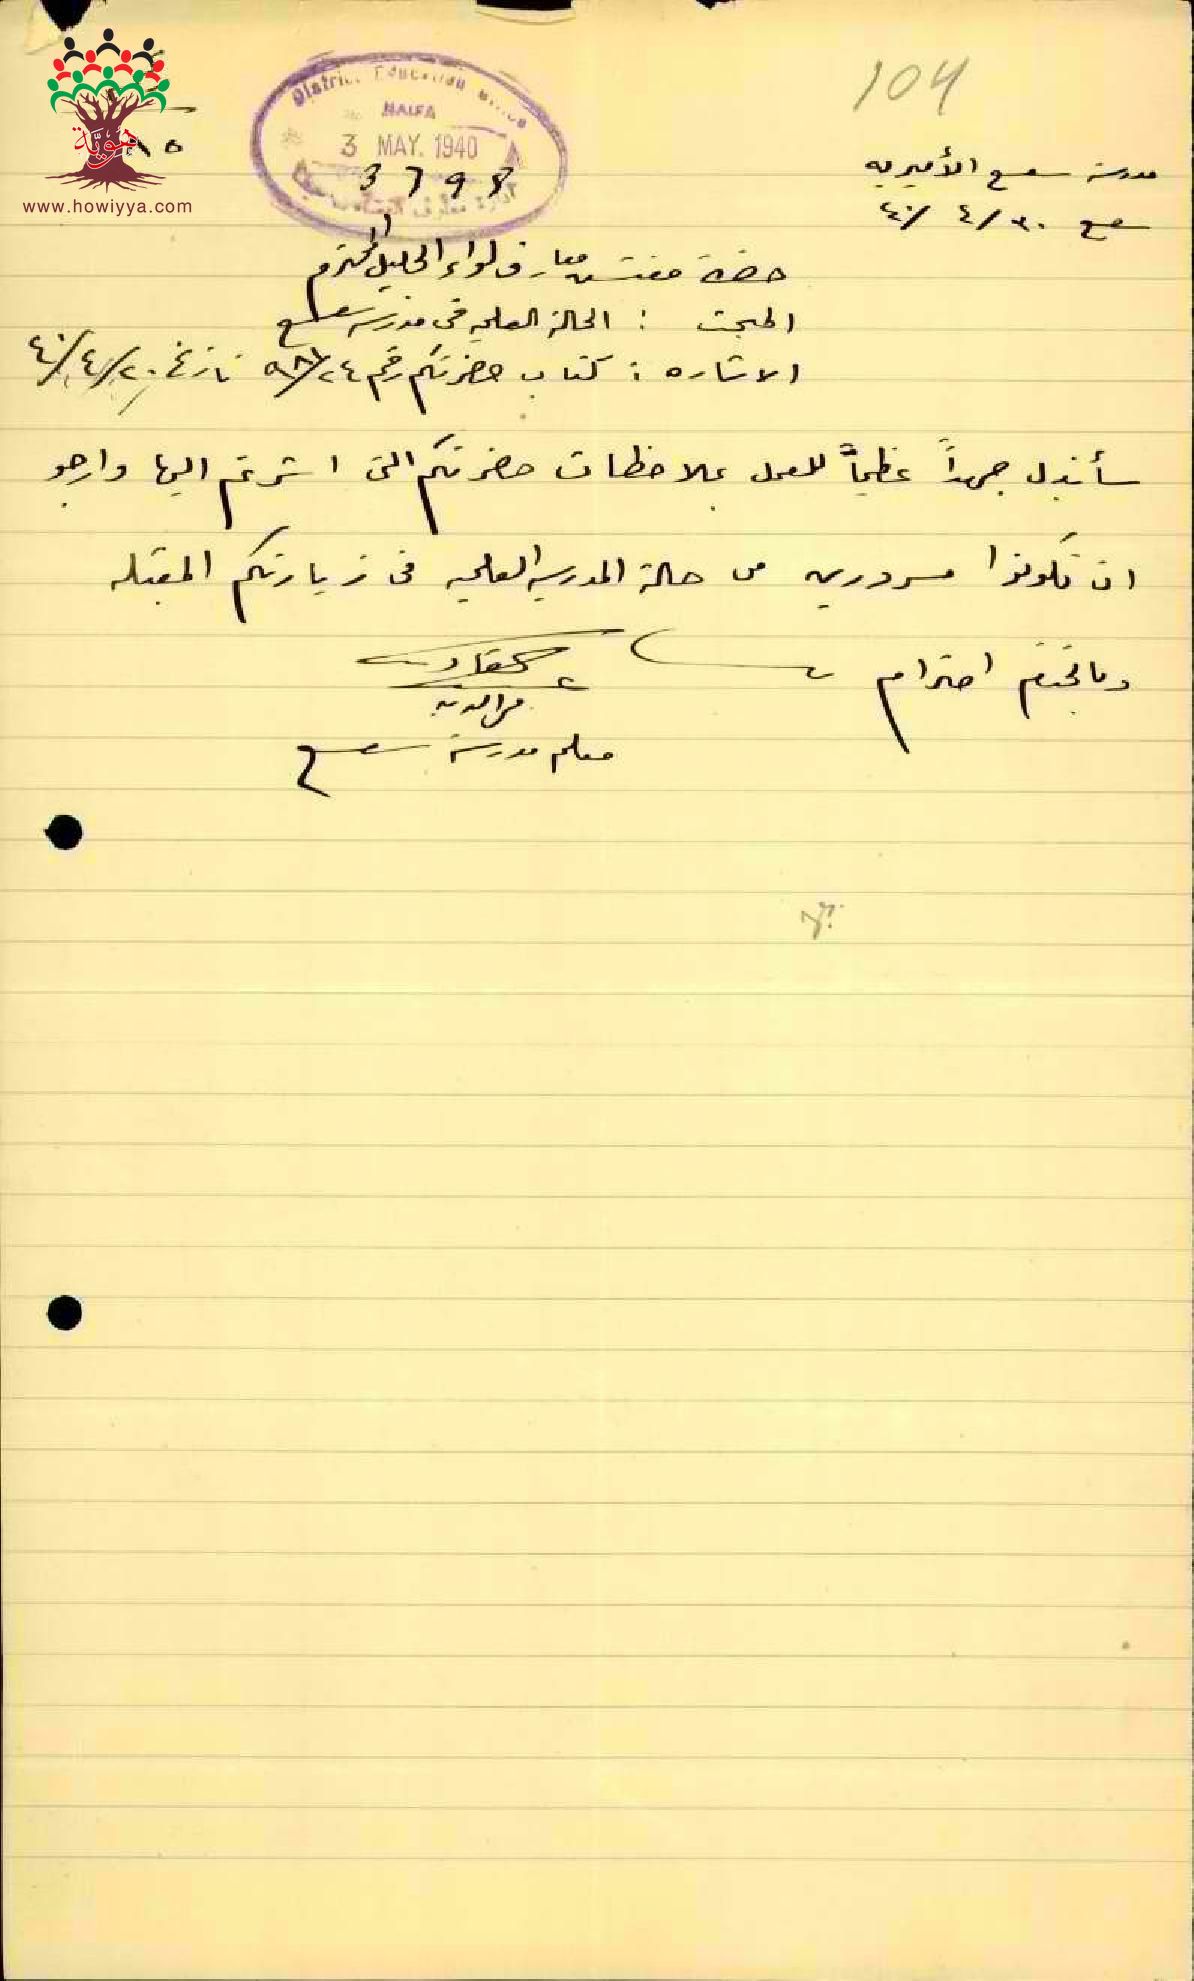 104
هوية
www.howiyya.com
District Education Office
HAIFA
3 MAY. 1940
3798
ادارة معارف
مدرسة سعسع الأميريه
سعسع ٣٠/ ٤ /٤٠
حضرة مفتش معارف لواء الجليل المحترم
المبحث : الحالة العلميه في مدرسة سعسع
الاشاره : كتاب حضرتكم رقم ٢٤/ تاريخ ٢٠/٤/٤٠
سأبذل جهداً عظيماً للعمل بملاحظات حضرتكم التي اشرتم اليها وارجو
ان تكونوا مسرورين من حالة المدرسه العلميه في زيارتكم المقبله
وبالختام احترام
معلم مدرسة سعسع